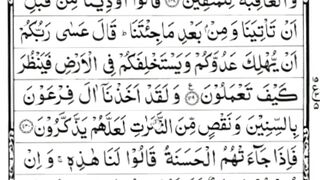 وَالْعَاقِبَةُ لِلْمُتَّقِينَ ﴿۱۲۸﴾ قَالُوْٓا اُوْذِيْنَا مِنْ قَبْلِ
اَنْ تَاْتِيَنَا وَمِنْۢ بَعْدِ مَا جِئْتَنَا ؕ قَالَ عَسٰى رَبُّكُمْ
اَنْ يُّهْلِكَ عَدُوَّكُمْ وَيَسْتَخْلِفَكُمْ فِى الْاَرْضِ فَيَنْظُرَ
كَيْفَ تَعْمَلُوْنَ ﴿۱۲۹﴾ وَلَقَدْ اَخَذْنَآ اٰلَ فِرْعَوْنَ
بِالسِّنِيْنَ وَنَقْصٍ مِّنَ الثَّمَرٰتِ لَعَلَّهُمْ يَذَّكَّرُوْنَ ﴿۱۳۰﴾
فَاِذَا جَآءَتْهُمُ الْحَسَنَةُ قَالُوْا لَنَا هٰذِهٖ ۚ وَاِنْ